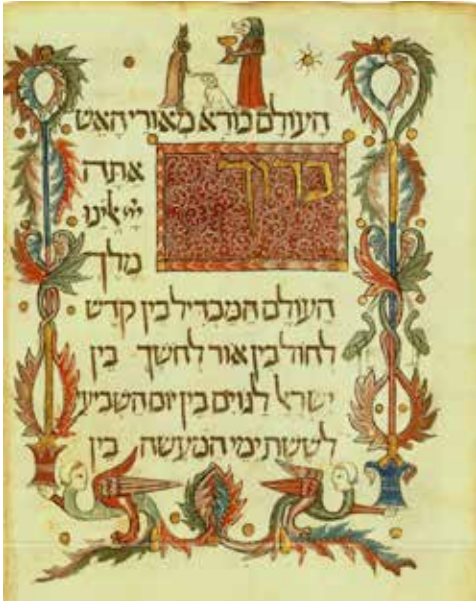 העולם בורא מאורי האש
ברוך אתה
יי אלינו
מלך
העולם המבדיל בין קדש
לחול בין אור לחשך בין
ישראל לגוים בין יום השביעי
לששת ימי המעשה בין